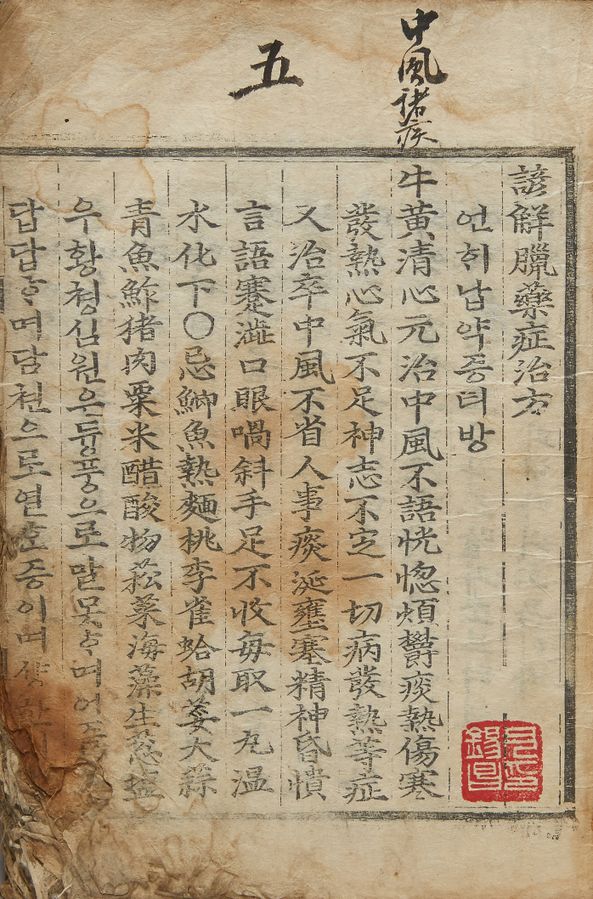 中風諸疾
五
諺解臘藥症治方
언ᄒᆡ납약증티방
牛黃清心元治中風不語恍惚煩鬱痰熱傷寒
發熱心氣不足神志不定一切病發熱等症
又治卒中風不省人事痰涎壅塞精神昏憒
言語蹇澁口眼喎斜手足不收每取一丸温
水化下〇忌鯽魚熱麵桃李雀蛤胡荽大蒜
青魚鮓猪肉粟米醋酸物菘菜海藻生葱塩
우황쳥심원은듕풍으로말못ᄒᆞ며어즐
답답ᄒᆞ며담쳔으로열ᄒᆞᆫ증이며샹한